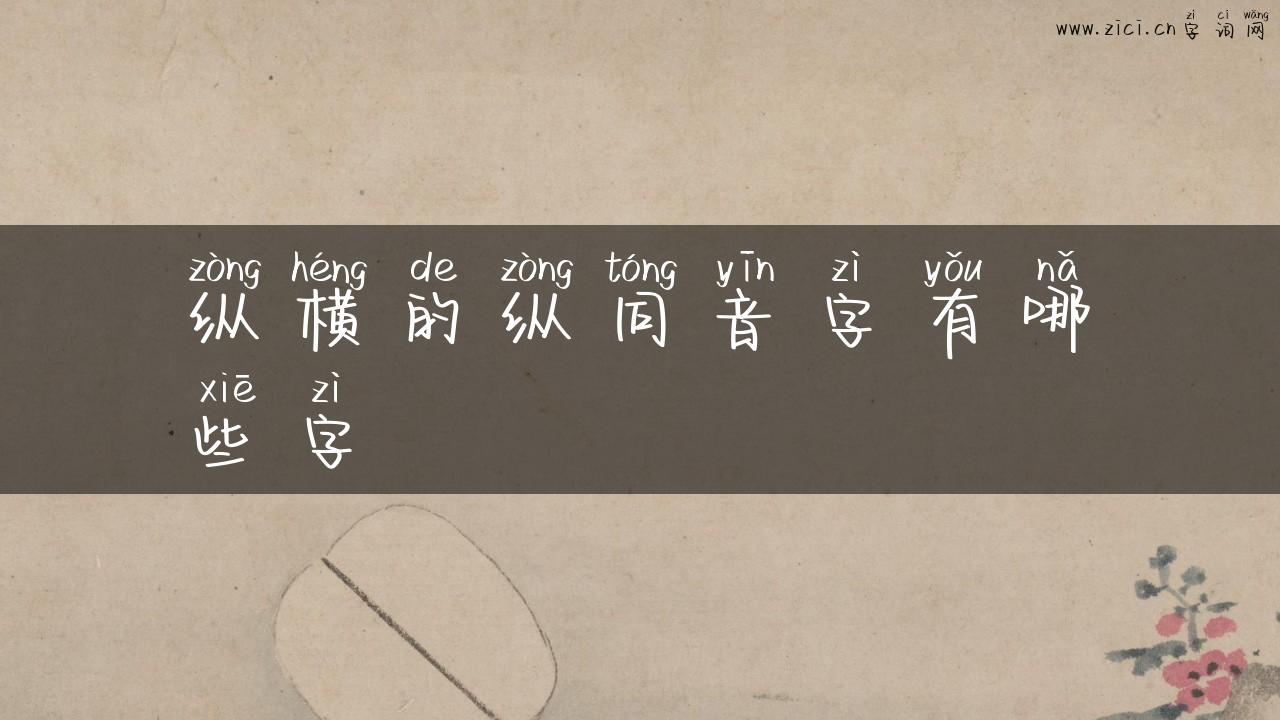 zì cí wǎng
www.zici.cn 字词网
zòng héng de zòng tóng yīn zì yǒu nǎ
纵横的纵同音字有哪
xiē zì
些字